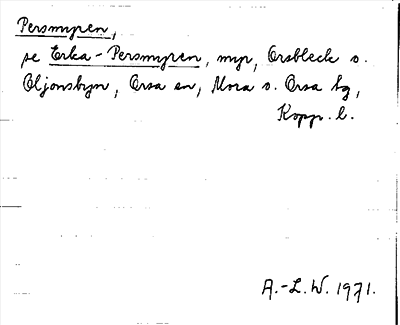 Persmyren,
se Erka-Persmyren, myr, Orsbleck o.
Oljonsbyn, Orsa sn, Mora o. Orsa tg,
Kopp. l.
A.-L.W. 1971.